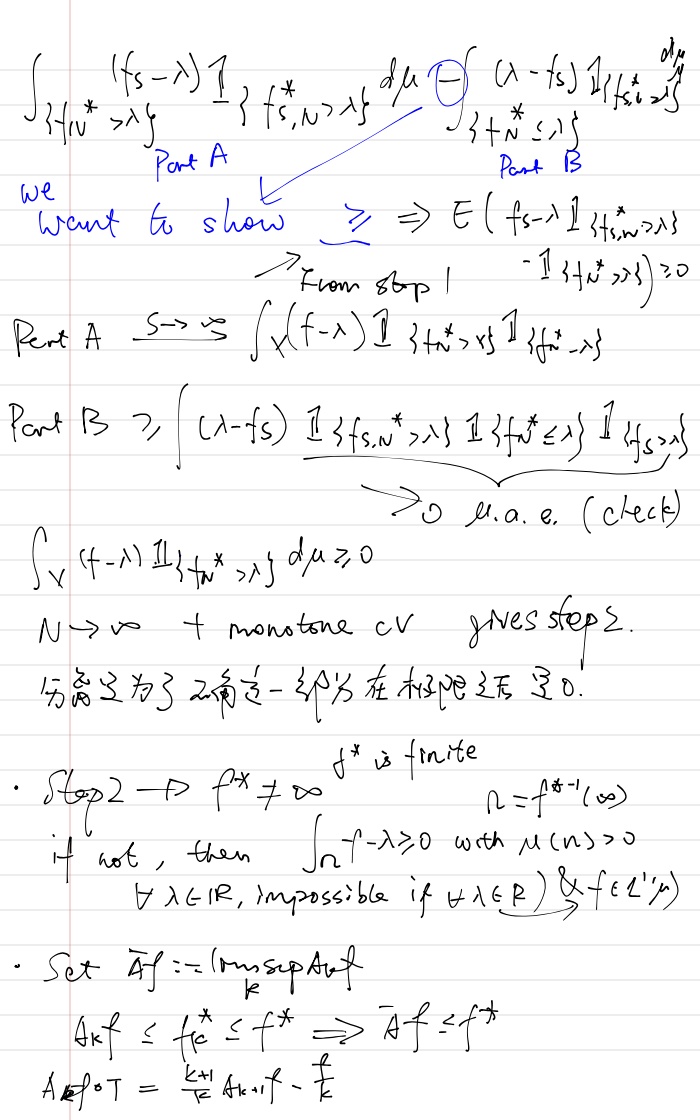 ∫_{f_N^* > λ} (f_s - λ) 𝟙_{f_{s,N}^* > λ} dμ - ∫_{f_N^* ≤ λ} (λ - f_s) 𝟙_{f_{s,N}^* > λ} dμ
Part A Part B
we
want to show ≥ ⇒ E( f_s - λ 𝟙_{f_{s,N}^* > λ}
From step 1 - 𝟙_{f_N^* > λ} ) ≥ 0
Part A s→∞ ∫_X (f - λ) 𝟙_{f_N^* > λ} 𝟙_{f_N^* - λ}
Part B ≥ ∫ (λ - f_s) 𝟙_{f_{s,N}^* > λ} 𝟙_{f_N^* ≤ λ} 𝟙_{f_s > λ}
→ 0 μ.a.e. (check)
∫_X (f - λ) 𝟙_{f_N^* > λ} dμ ≥ 0
N → ∞ + monotone cv gives step 2.
为了 一部分在极限 是0.
· Step 2 → f^* ≠ ∞ f^* is finite
n = f^{*-1}(∞)
if not, then ∫_n f - λ ≥ 0 with μ(n) > 0
∀ λ ∈ ℝ, impossible if ∀ λ ∈ ℝ) & f ∈ L'(μ)
· Set Āf := limsup_k A_k f
A_k f ≤ f_k^* ≤ f^* ⇒ Āf ≤ f^*
A_k f∘T = (k+1)/k A_{k+1} f - f/k